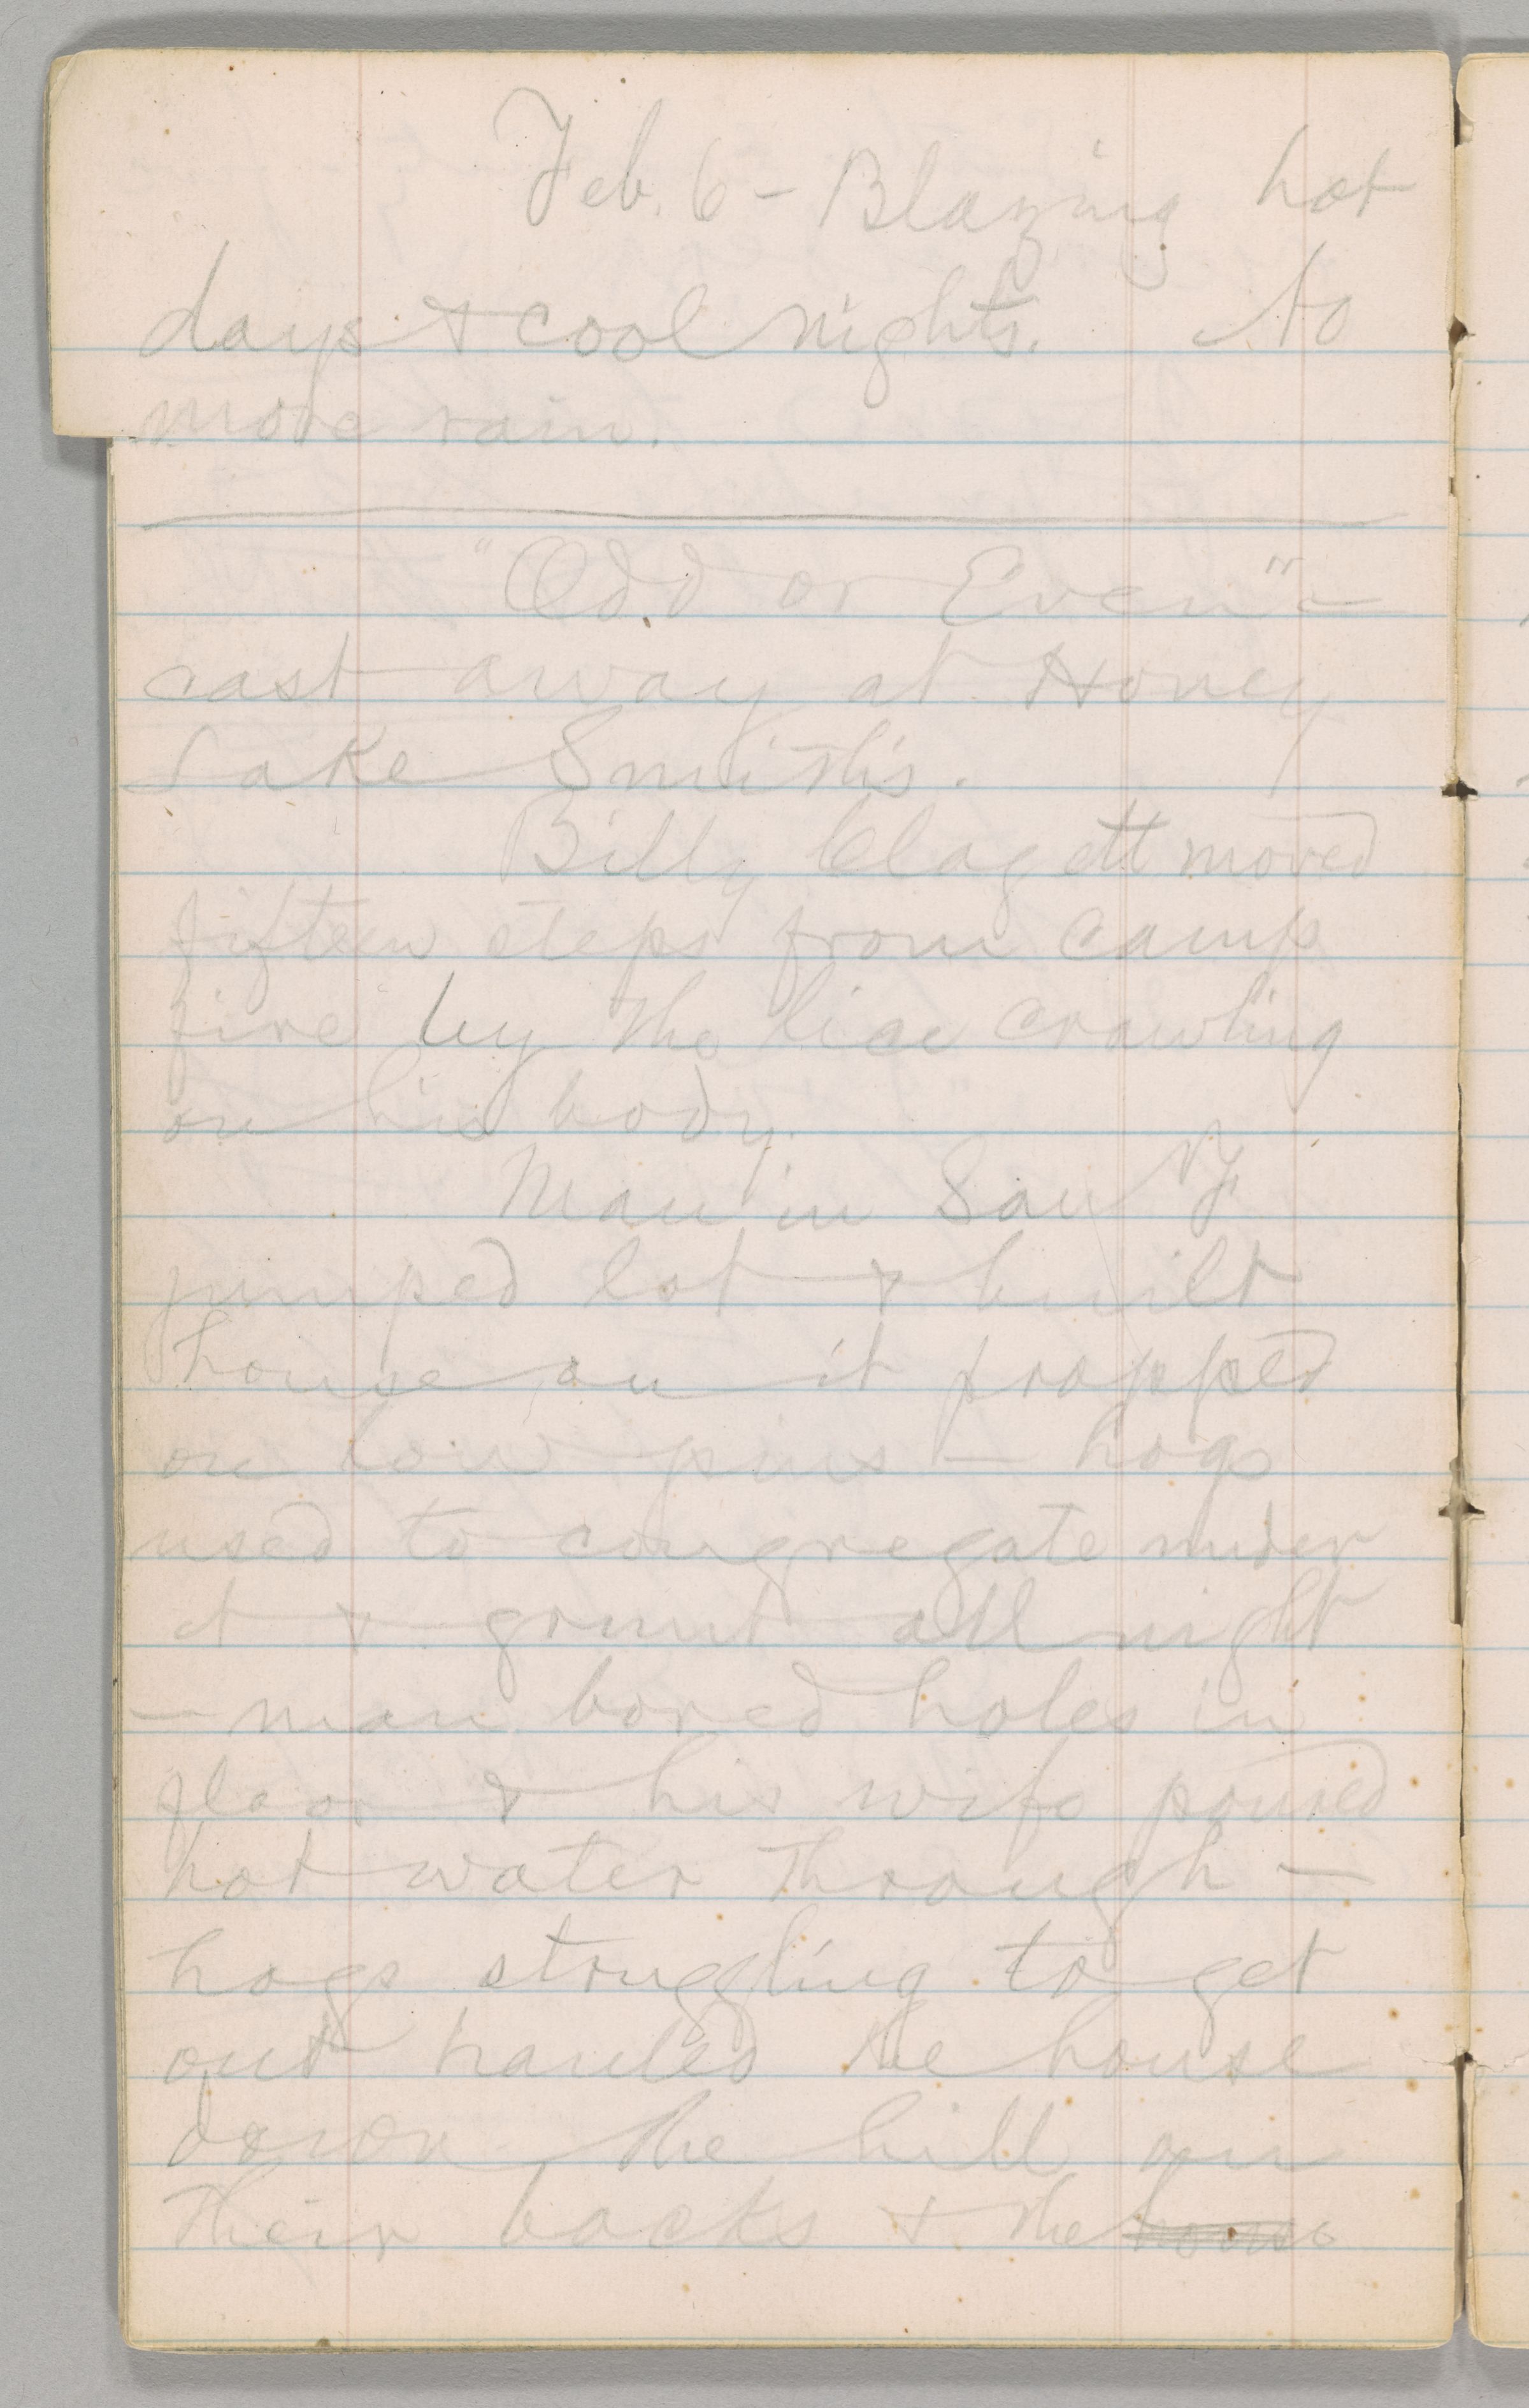 Feb. 6 – Blazing hot
days & cool nights. No
more rain.
"Odd or Even" –
cast away at Honey
Lake Smith's.
Billy Clagett moved
fifteen steps from camp
fire by the lice crawling
on his body.
Man in San F
jumped lot & built
house on it propped
on low pins – hogs
used to congregate under
it & grunt all night
– man bored holes in
floor & his wife poured
hot water through –
hogs struggling to get
out hauled the house
down the hill on
their backs & the house